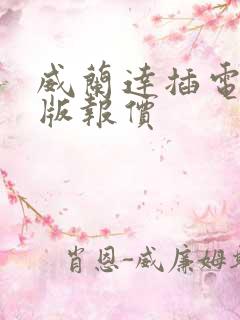 威蘭達插電
版報價
肖恩-威廉姆斯